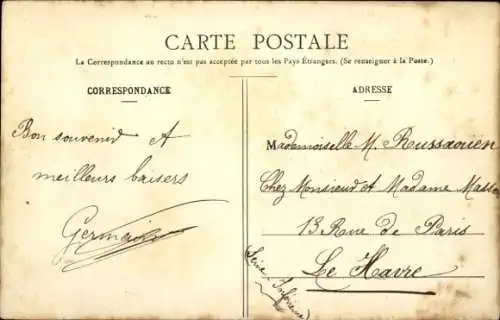 CARTE POSTALE
La Correspondance au recto n'est pas acceptée par tous les Pays Étrangers. (Se renseigner à la Poste.)
CORRESPONDANCE
Bon souvenir A
meilleurs baisers
Germain
ADRESSE
Mademoiselle M.
Chez Monsieur et Madame
13 Rue de Paris
Le Havre
(Seine Inférieure)